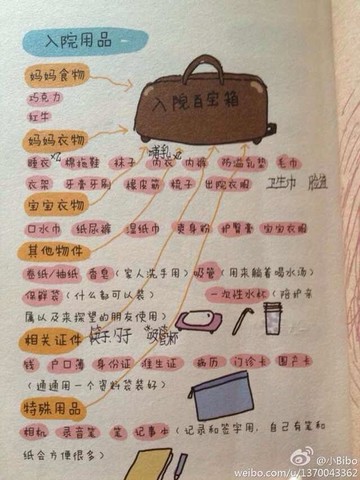 入院用品
妈妈食物
入院百宝箱
巧克力
红牛
妈妈衣物
哺乳
睡衣x2 棉拖鞋 袜子 内衣x2 内裤 防溢乳垫 毛巾
衣架 牙膏牙刷 橡皮筋 梳子 出院衣服 卫生巾
宝宝衣物
口水巾 纸尿裤 湿纸巾 爽身粉 护臀膏 宝宝衣服
其他物件
卷纸/抽纸 香皂(家人洗手用)吸管(用来躺着喝水汤)
保鲜袋(什么都可以装) 一次性水杯(陪护亲
属以及来探望的朋友使用)
相关证件 筷子/勺子
钱 户口簿 身份证 准生证 病历 门诊卡 围产卡
(通通用一个资料袋装好)
特殊用品
相机 录音笔 笔 记事本(记录和签字用,自己有笔和
纸会方便很多)
@小Bibo
weibo.com/u/1370043362